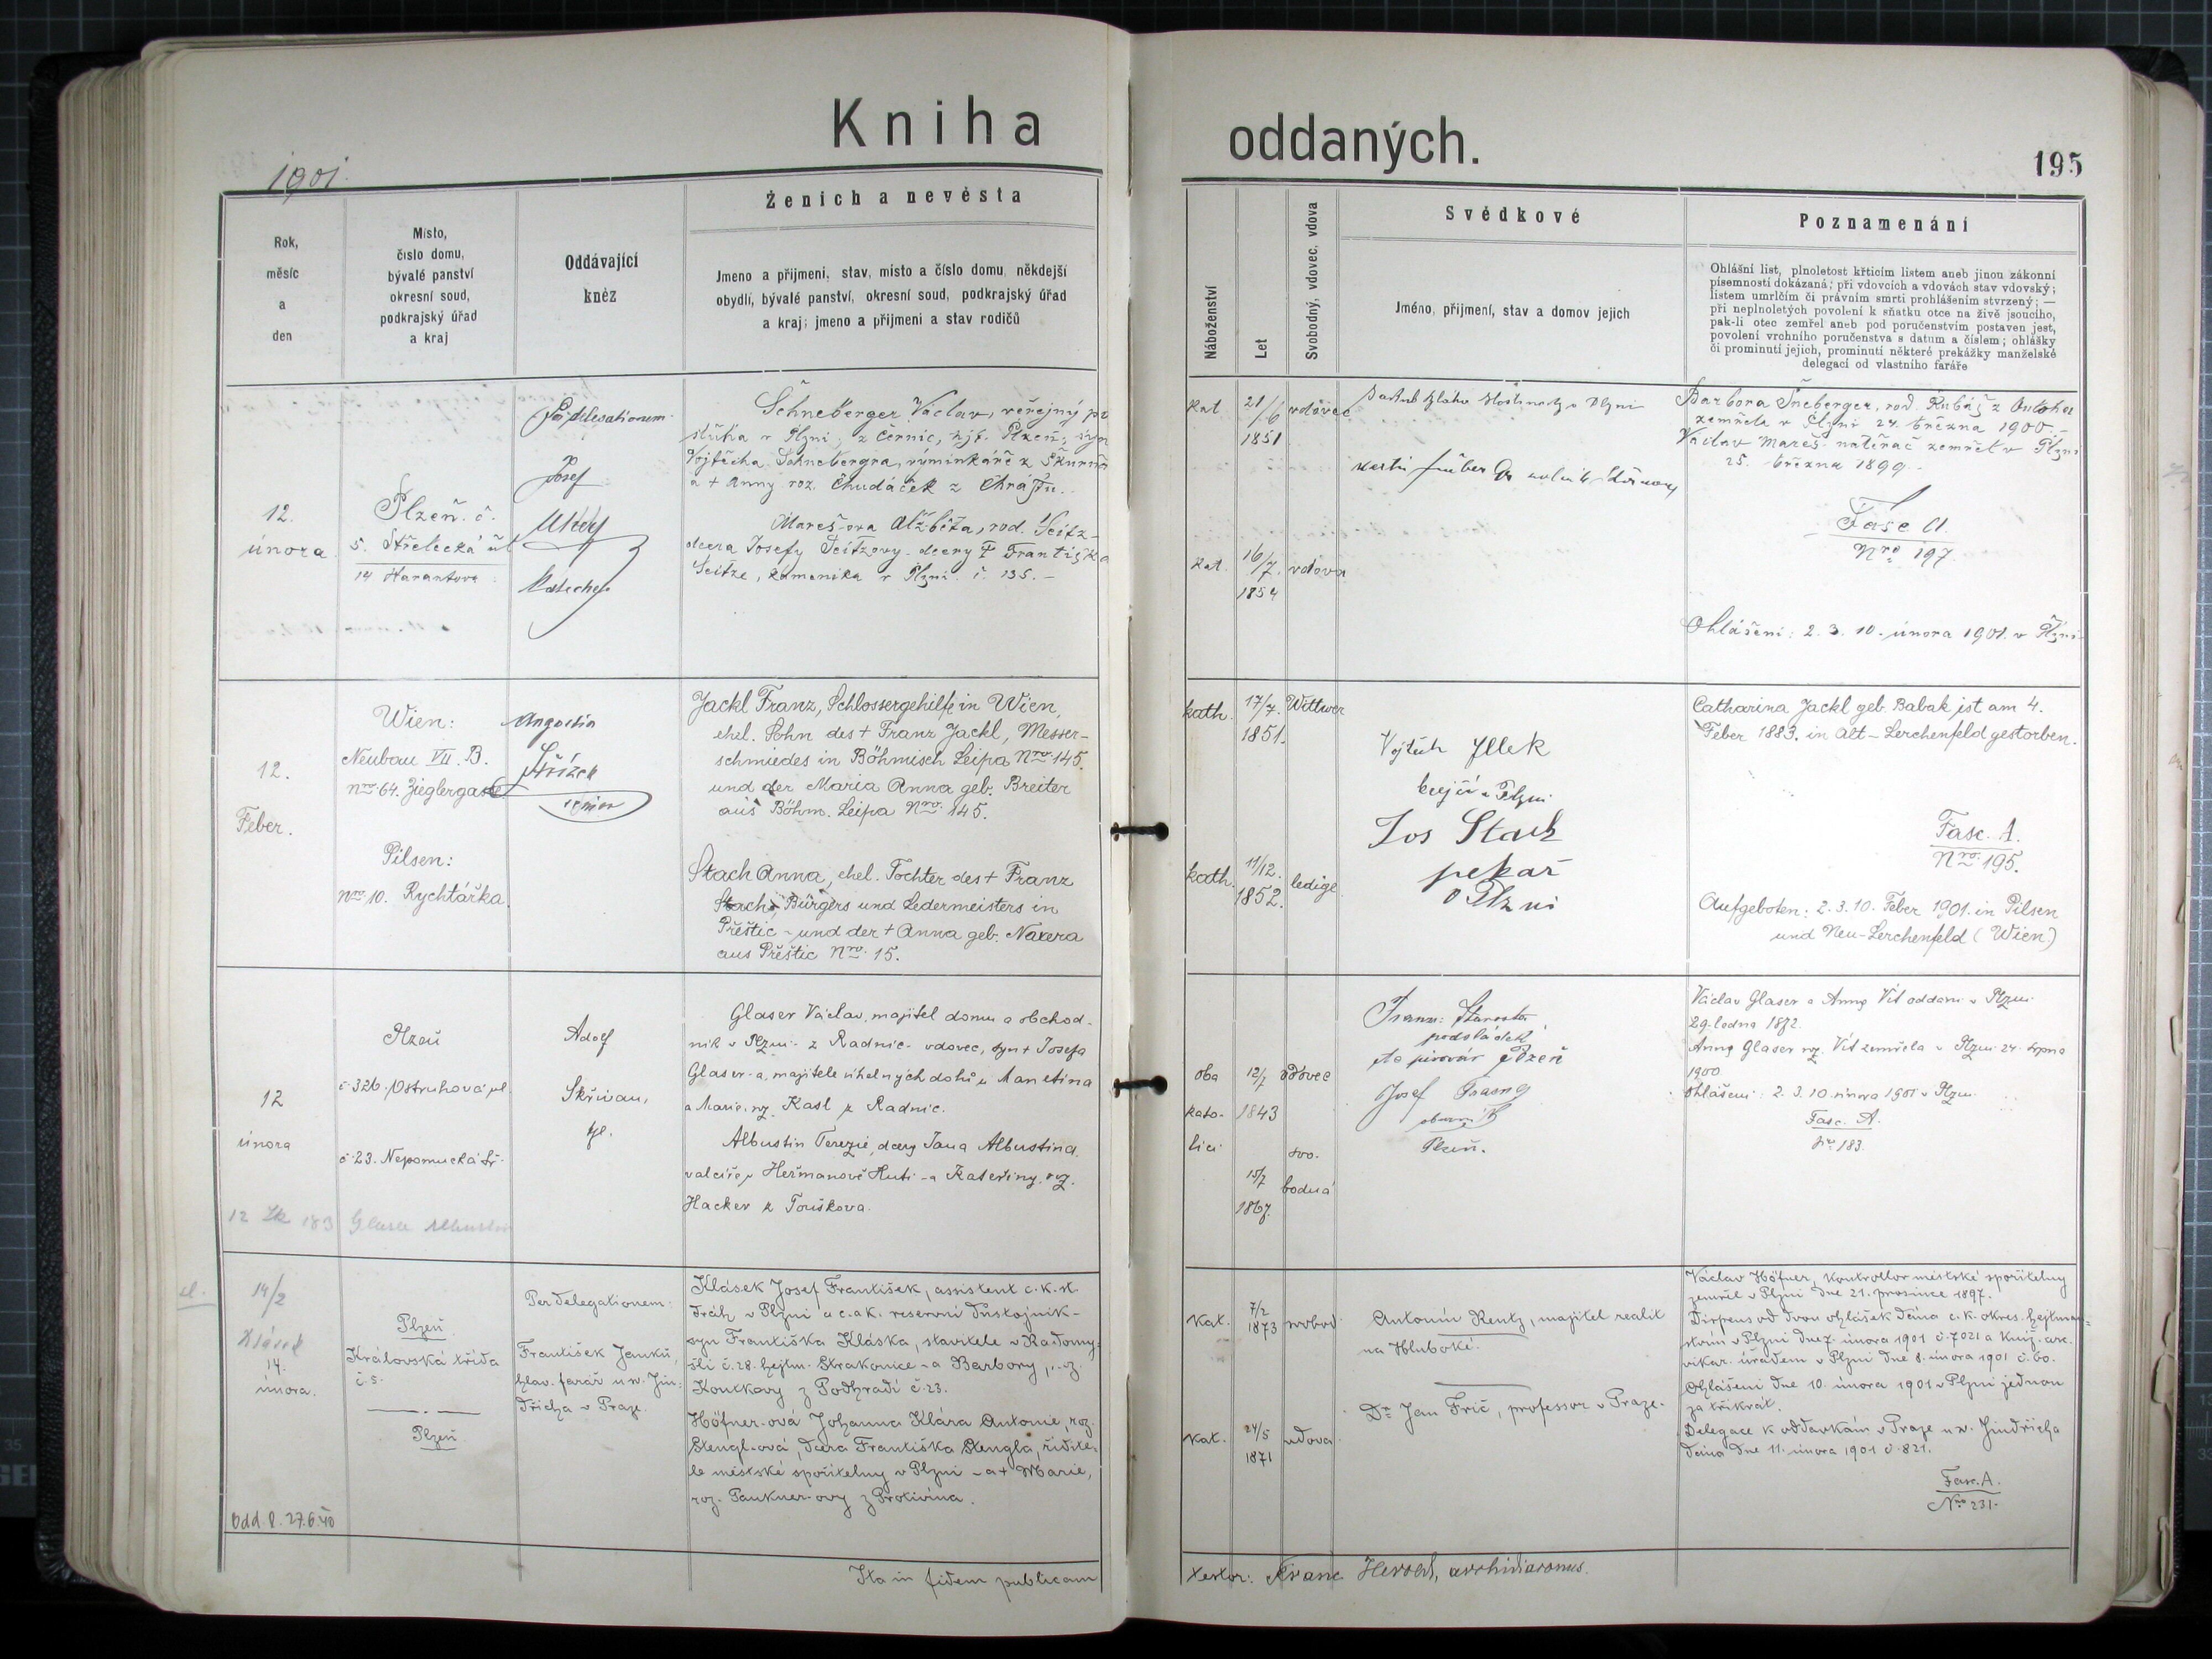 Kniha
oddaných.
1901.
195
Rok,
měsíc
a
den
Místo,
číslo domu,
bývalé panství
okresní soud,
podkrajský úřad
a kraj
Oddávající
kněz
Ženich a nevěsta
Jmeno a přijmení, stav, místo a číslo domu, někdejší
obydlí, bývalé panství, okresní soud, podkrajský úřad
a kraj; jmeno a přijmeni a stav rodičů
Náboženství
Let
Svobodný, vdovec, vdova
Svědkové
Jméno, přijmení, stav a domov jejich
Poznamenání
Ohlášní list, plnoletost křticím listem aneb jinou zákonní
písemností dokázaná; při vdovcích a vdovách stav vdovský;
listem umrlčím či právním smrti prohlášením stvrzený; —
při neplnoletých povolení k sňatku otce na živě jsoucího,
pak-li otec zemřel aneb pod poručenstvím postaven jest,
povolení vrchního poručenstva s datum a číslem; ohlášky
či prominutí jejich, prominutí některé prekážky manželské
delegací od vlastního faráře
12.
února
Plzeň. č.
5. Střelecká ul
14 Harantova
Per delegationem
Josef
Schneberger Václav, veřejný po
sluha v Plzni, z Černic, hjt. Plzeň, syn
Vojtěcha Schnebergra, výminkáře z
a + Anny roz. Chudáček z
Mareš-ova Alžběta, rod. Seitz-
dcera Josefy Seitzovy - dcery + Františka
Seitze, kameníka v Plzni č. 135. -
kat
21/6
1851
vdovec
kat.
16/7.
1854
vdova
Barbora Šneberger, rod.
zemřela v Plzni 24. března 1900. -
Václav Mareš - natěrač zemřel v Plzni
25. března 1899 -
Fasc A
Nro 197
Ohlášeni: 2. 3. 10. února 1901. v Plzni
12.
Feber.
Wien:
Neubau VII. B.
Nro 64. Zieglergasse
Pilsen:
Nro 10. Rychtářka.
Jackl Franz, Schlossergehilfe in Wien,
ehel. Sohn des + Franz Jackl, Messer-
schmiedes in Böhmisch Leipa Nro 145.
und der Maria Anna geb. Breiter
aus Böhm. Leipa Nro. 145.
Stach Anna, ehel. Tochter des + Franz
Stach, Bürgers und Ledermeisters in
Přeštic - und der + Anna geb. Naxera
aus Přeštic Nro 15.
kath.
17/7.
1851.
Wittwer
kath.
11/12.
1852.
ledige
Vojtěch Jílek
krejčí v Plzni
Jos Stach
pekař
v Plzni
Catharina Jackl geb. Babak ist am 4.
Feber 1883. in Alt-Lerchenfeld gestorben.
Fasc. A.
Nro 195.
Aufgeboten: 2. 3. 10. Feber 1901. in Pilsen
und Neu-Lerchenfeld (Wien)
12
února
Plzeň
č 326. Ostruhová ul.
č. 23. Nepomucká tř.
Adolf
Skřivan,
Glaser Václav, majitel domu a obchod-
ník v Plzni - z Radnic - vdovec, syn + Josefa
Glaser-a, majitele uhelných dolů u Manetína
a Marie, roz. Kasl z Radnic.
Albustin Terezie, dcera Jana Albustina,
valcíře v Heřmanově Huti - a Kateřiny, roz.
Hacker z Touškova.
oba
kato-
líci
12/7
1843
vdovec
15/7
1867.
svo-
bodná
Franz: Starosta
Josef
Plzeň.
Václav Glaser a Anna Vít oddáni v Plzni
29. ledna 1872.
Anna Glaser roz. Vít zemřela v Plzni 24. srpna
1900
Ohlášeni: 2. 3. 10. února 1901 v Plzni
Fasc. A.
Nro 183.
14/2
14.
února.
Odd. l. 27.6.40
Plzeň
Královská třída
č. 5.
Plzeň
Per delegationem:
František Janků,
hlav. farář u sv. Jin-
dřicha v Praze.
Klásek Josef František, assistent c. k. st.
drah v Plzni a c. a k. reservní důstojník -
syn Františka Kláska, stavitele v Radomy-
šli č. 28. hejtm. Strakonice - a Barbory, roz.
Koutkovy z Podhradí č. 23.
Höfner-ová Johanna Klára Antonie, roz.
Stengl-ová, dcera Františka Stengla, ředite-
le městské spořitelny v Plzni - a + Marie,
roz. Paukner-ovy z Protivína.
kat.
7/2
1873
svobod.
kat.
24/5
1871
vdova
Antonín Rentz, majitel realit
na Hluboké.
Dr. Jan Frič, professor v Praze.
Václav Höfner, kontrollor městské spořitelny
zemřel v Plzni dne 21. prosince 1897.
Dispens od dvou ohlášek dána c. k. okres. hejtman-
stvím v Plzni dne 7. února 1901 č. 7021 a kníž. arc.
vikar. úřadem v Plzni dne 8. února 1901 č. 60.
Ohlášeni dne 10. února 1901 v Plzni jednou
za třikrát.
Delegace k oddavkám v Praze u sv. Jindřicha
dána dne 11. února 1901 č. 821.
Fasc. A.
Nro 231.
Ita in fidem publicam
testor: Franc Herold, archidiaconus.